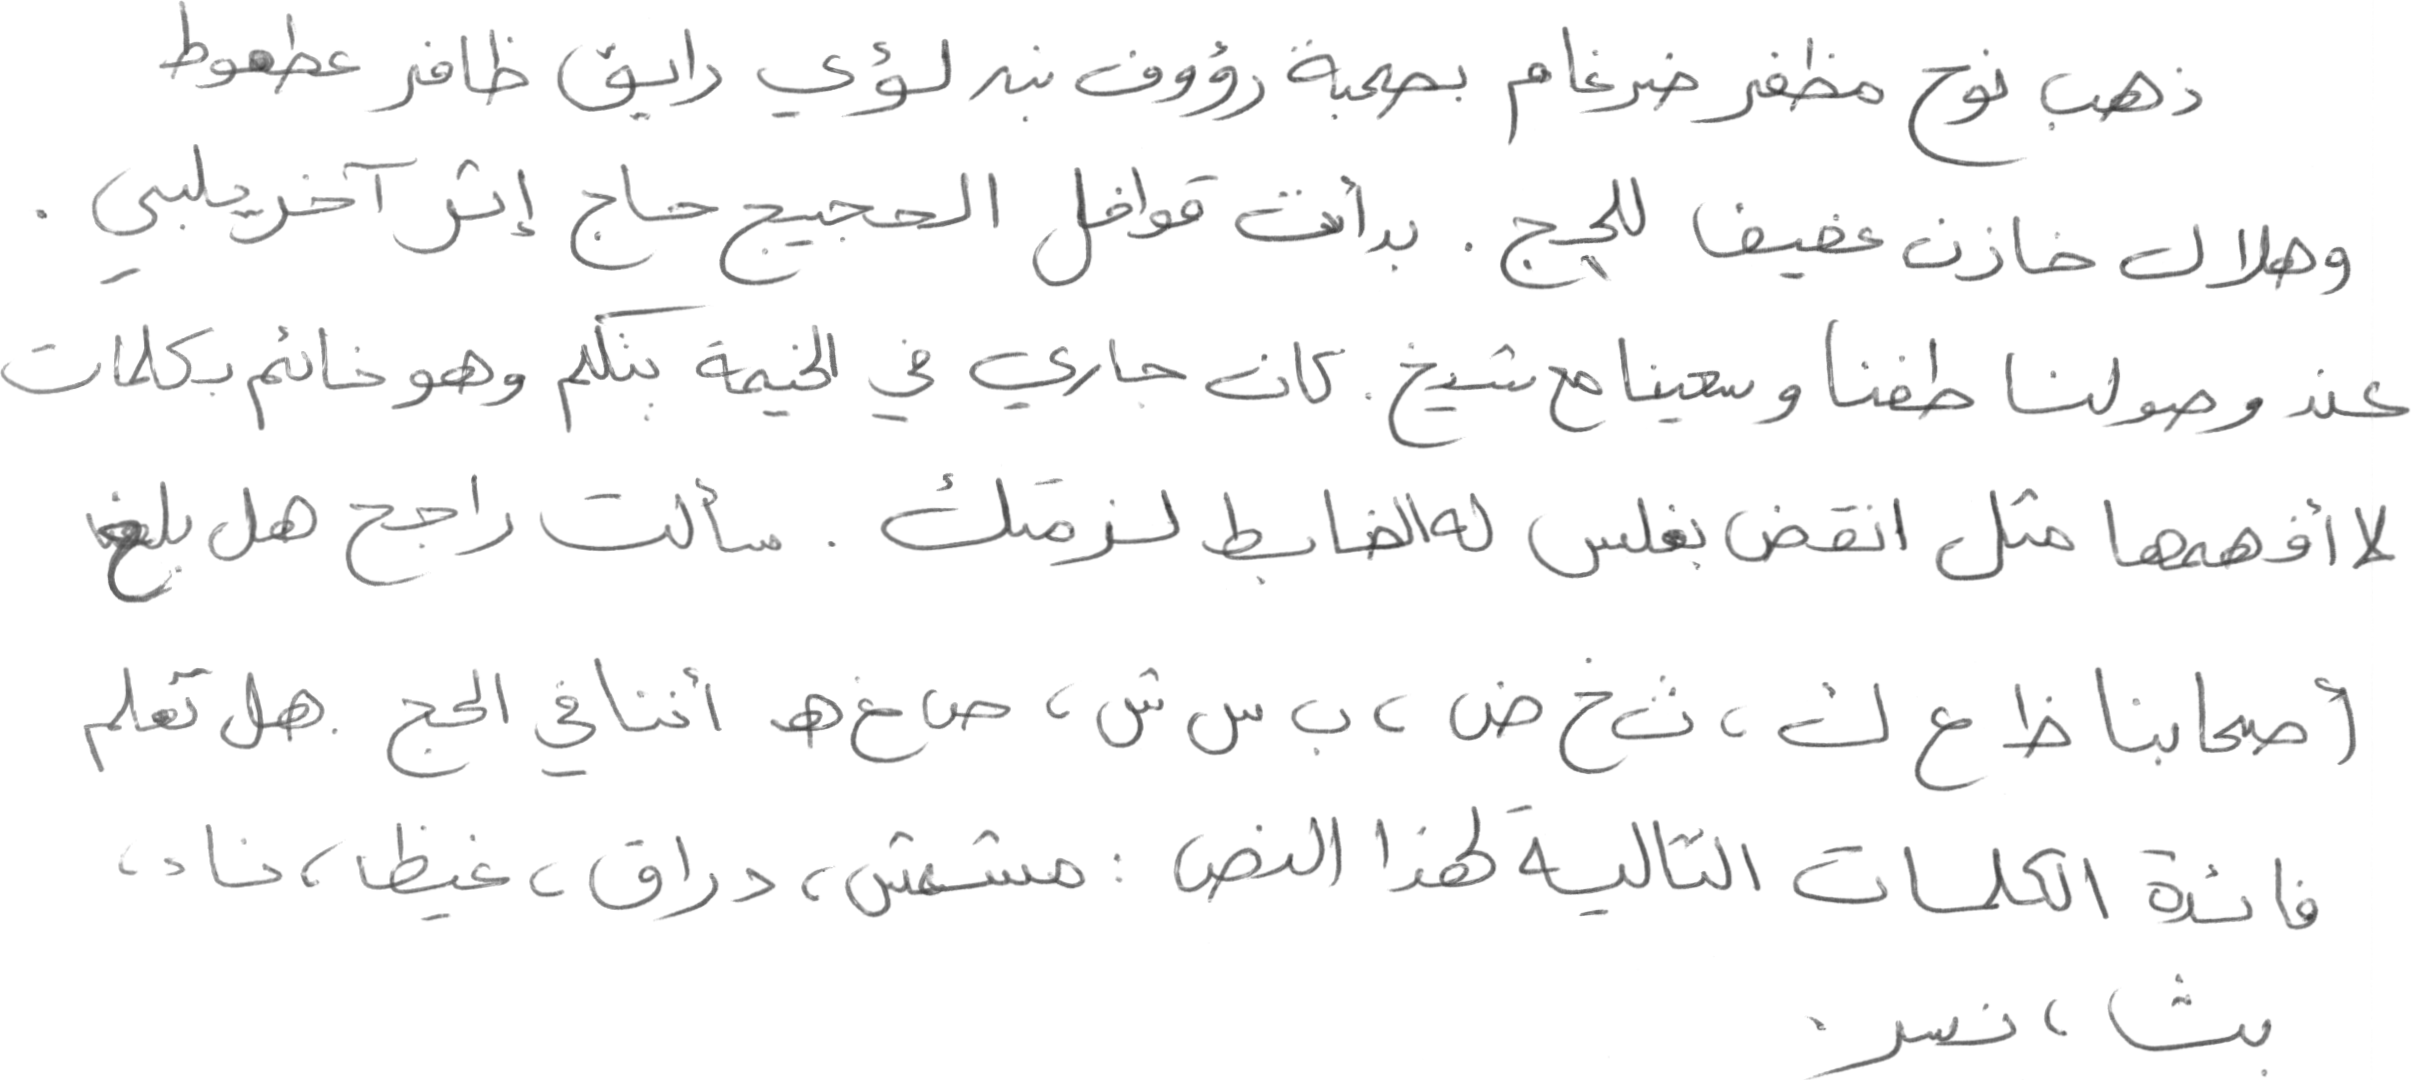 ذهب نوح مظفر ضرغام بصحبة رؤوف بن لؤي رايق ظافر عطعوط
وهلال خازن عفيف للحج . بدأت قوافل الحجيج حاج إثر آخر يلبي .
عند وصولنا طفنا وسعينا مع شيخ . كان جاري في الخيمة يتكلم وهو نائم بكلمات
لا أفهمها مثل انقض بغلس له الضابط لزمتك . سألت راجح هل بلغ
أصحابنا ظ ع ك ، ث خ ض ، ب س ش ، ص غ ه أننا في الحج . هل تعلم
فائدة الكلمات التالية لهذا النص : مشمش ، دراق ، غيظ ، ناد ،
بث ، نسر .